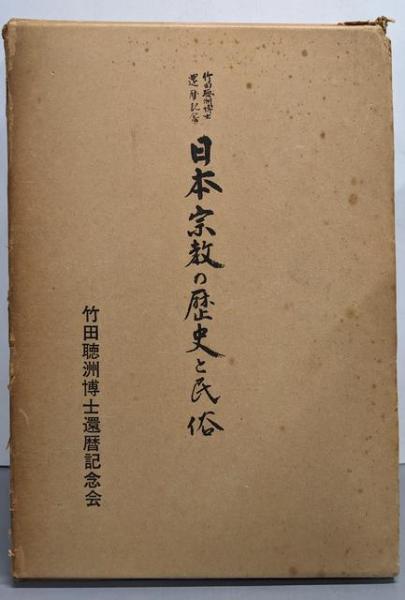 竹田聴洲博士
還暦記念
日本宗教の歴史と民俗
竹田聴洲博士還暦記念会